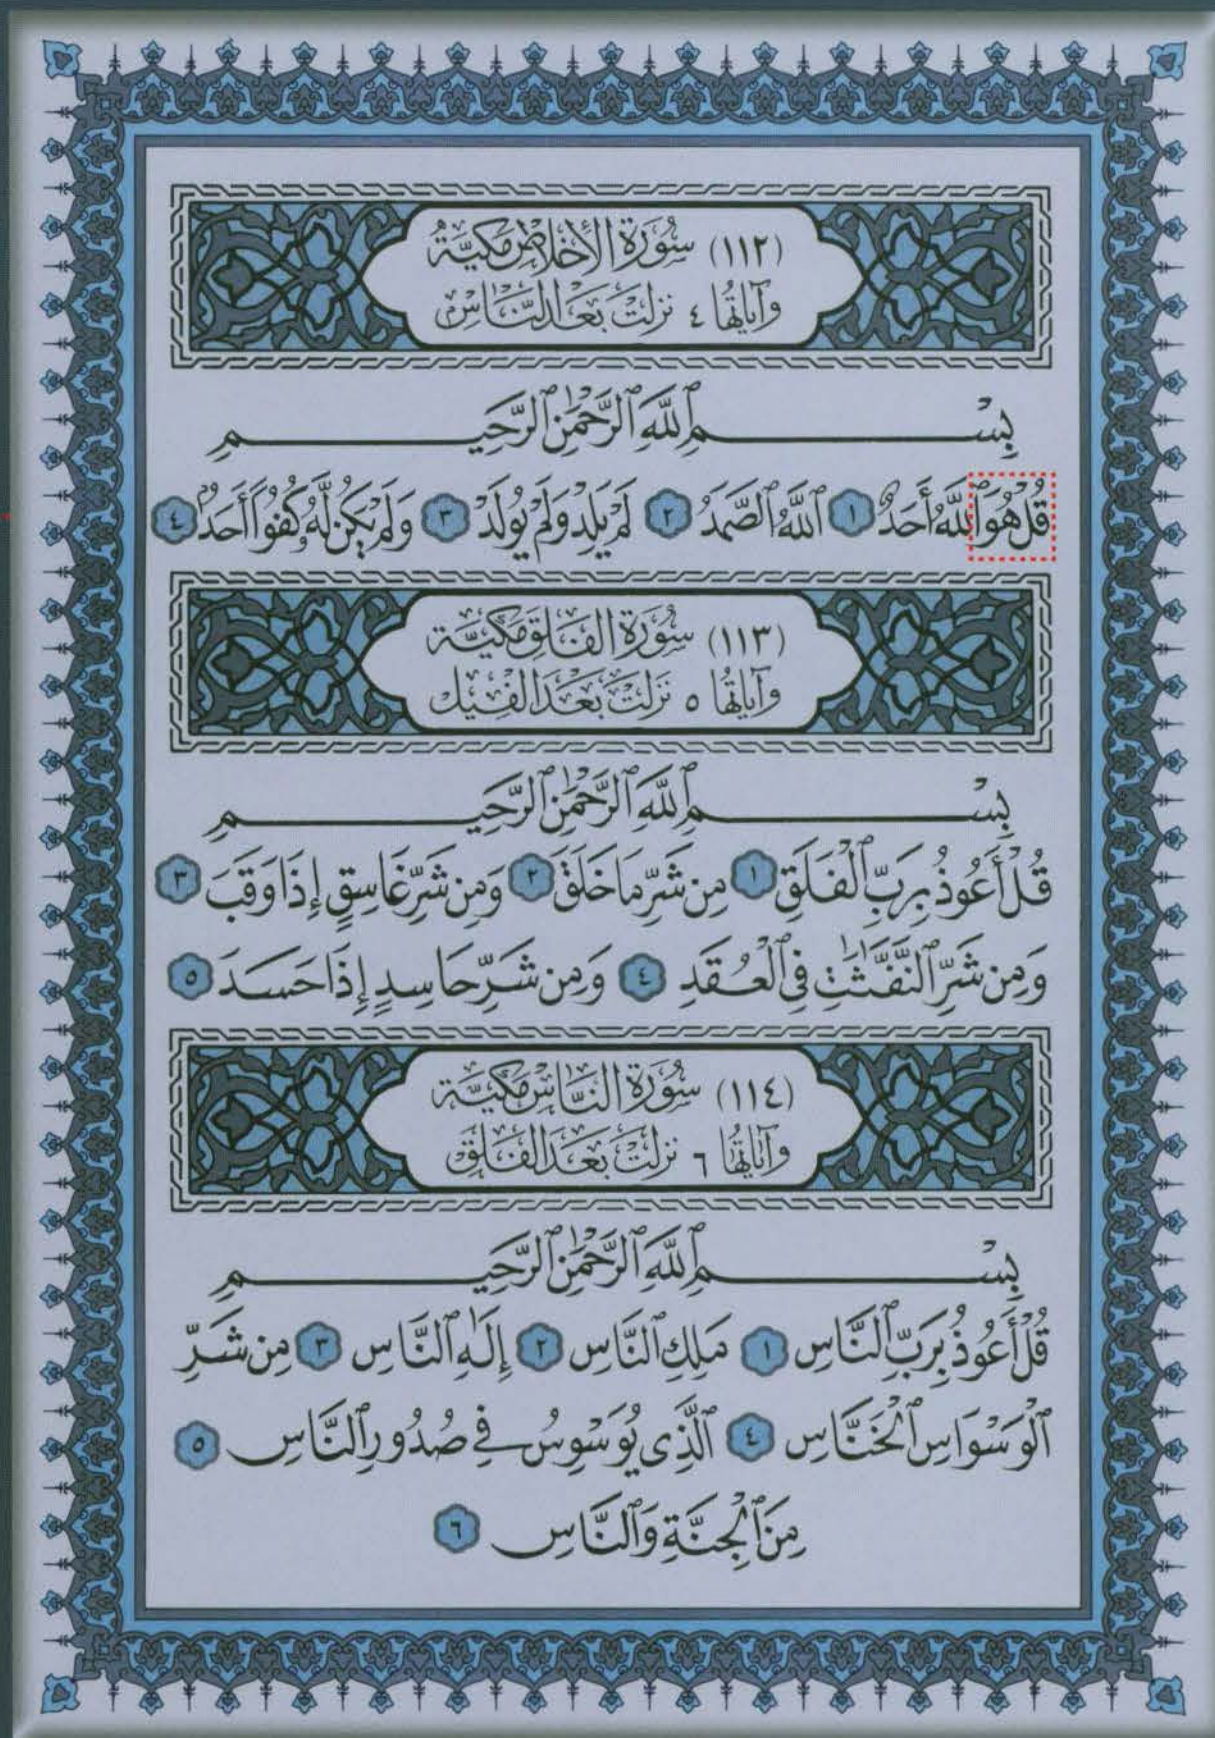 (١١٢) سُورَةُ الْإِخْلَاصِ مَكِّيَّةٌ
وَآيَاتُهَا ٤ نَزَلَتْ بَعْدَ النَّاسِ
بِسْمِ ٱللَّهِ ٱلرَّحْمَٰنِ ٱلرَّحِيمِ
قُلْ هُوَ ٱللَّهُ أَحَدٌ ١ ٱللَّهُ ٱلصَّمَدُ ٢ لَمْ يَلِدْ وَلَمْ يُولَدْ ٣ وَلَمْ يَكُن لَّهُۥ كُفُوًا أَحَدٌۢ ٤
(١١٣) سُورَةُ الْفَلَقِ مَكِّيَّة
وَآيَاتُهَا ٥ نَزَلَتْ بَعْدَ الْفِيلِ
بِسْمِ ٱللَّهِ ٱلرَّحْمَٰنِ ٱلرَّحِيمِ
قُلْ أَعُوذُ بِرَبِّ ٱلْفَلَقِ ١ مِن شَرِّ مَا خَلَقَ ٢ وَمِن شَرِّ غَاسِقٍ إِذَا وَقَبَ ٣
وَمِن شَرِّ ٱلنَّفَّٰثَٰتِ فِي ٱلْعُقَدِ ٤ وَمِن شَرِّ حَاسِدٍ إِذَا حَسَدَ ٥
(١١٤) سُورَةُ النَّاسِ مَكِّيَّة
وَآيَاتُهَا ٦ نَزَلَتْ بَعْدَ الْفَلَقِ
بِسْمِ ٱللَّهِ ٱلرَّحْمَٰنِ ٱلرَّحِيمِ
قُلْ أَعُوذُ بِرَبِّ ٱلنَّاسِ ١ مَلِكِ ٱلنَّاسِ ٢ إِلَٰهِ ٱلنَّاسِ ٣ مِن شَرِّ
ٱلْوَسْوَاسِ ٱلْخَنَّاسِ ٤ ٱلَّذِي يُوَسْوِسُ فِي صُدُورِ ٱلنَّاسِ ٥
مِنَ ٱلْجِنَّةِ وَٱلنَّاسِ ٦